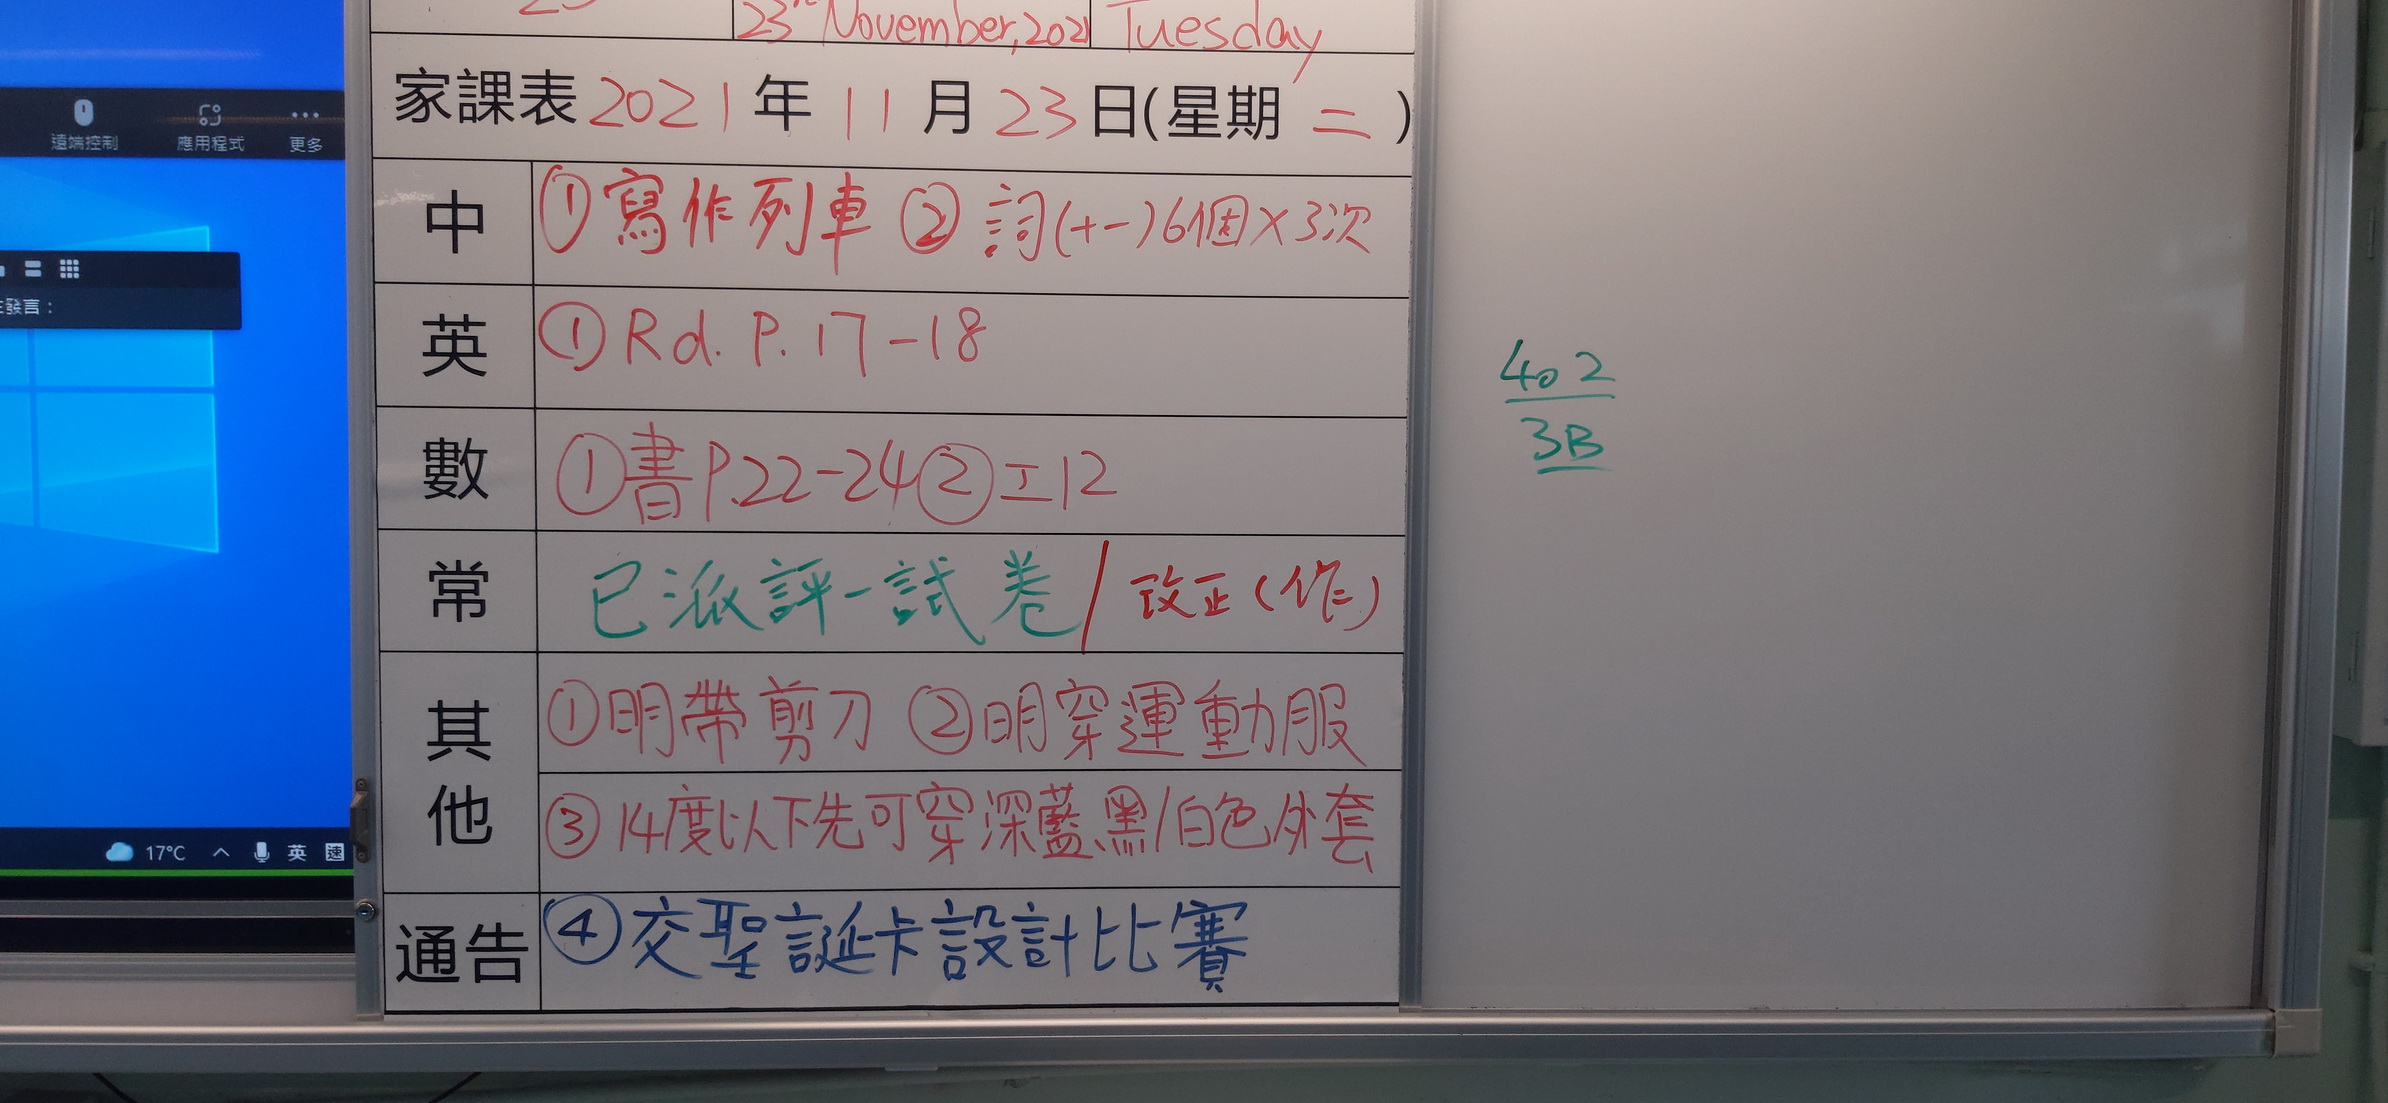 23rd November, 2021 Tuesday
家課表 2021 年 11 月 23 日(星期 二 )
中 ①寫作列車 ② 詞(十一)6個×3次
英 ① Rd. P. 17-18
數 ①書P.22-24②工12
常 已派評一試卷/改正(作)
其他 ①明帶剪刀 ②明穿運動服
③14度以下先可穿深藍、黑/白色外套
通告 ④交聖誕卡設計比賽
402
3B
遠端控制 應用程式 更多
發言:
17°C 英 速